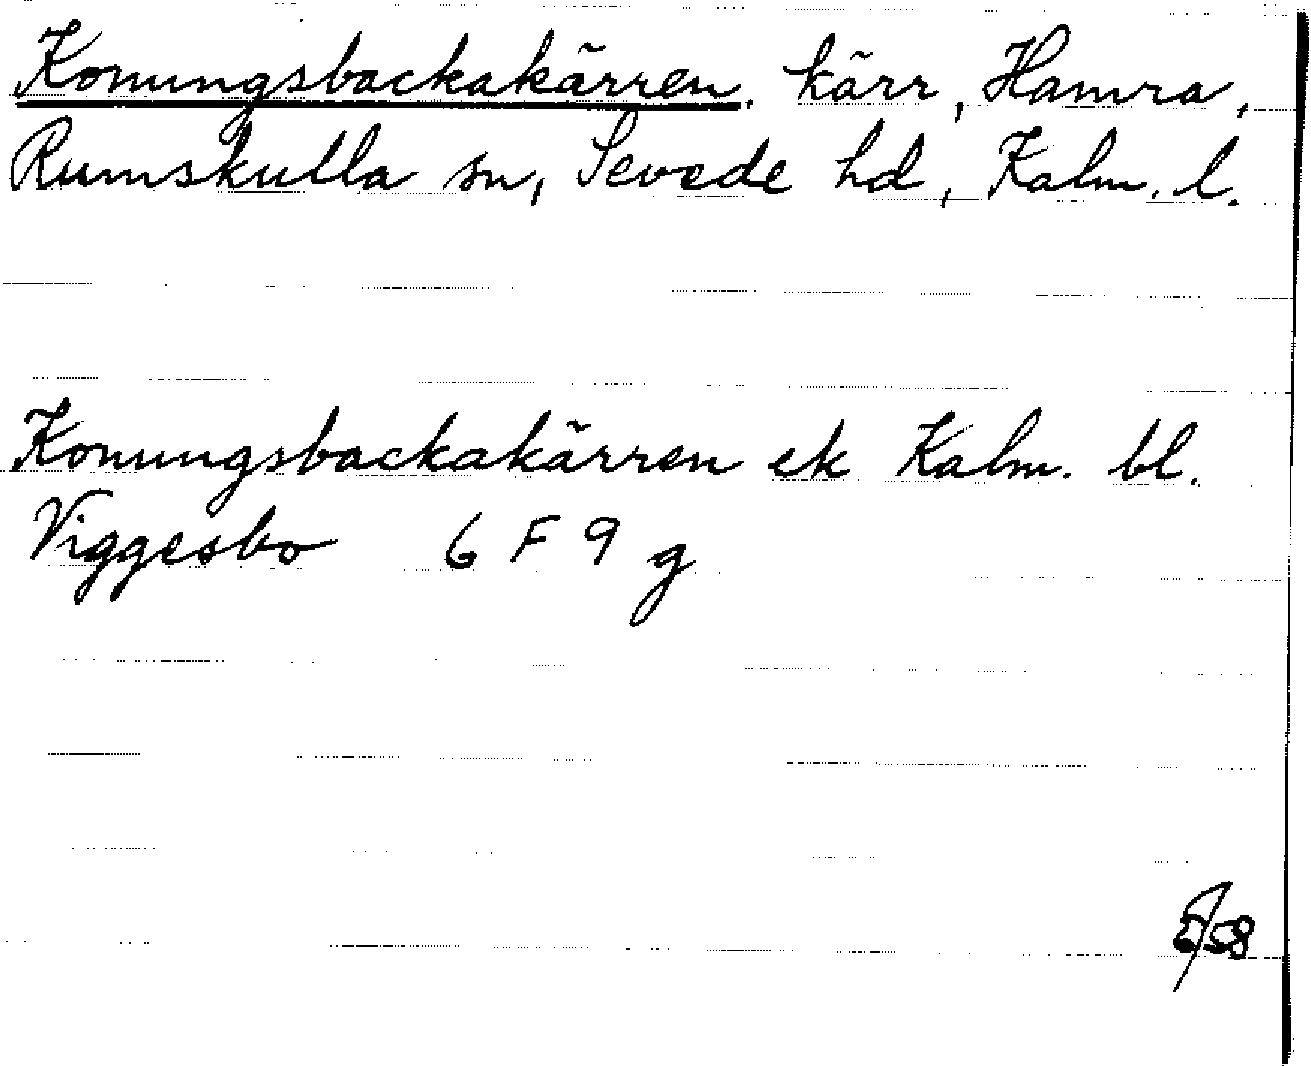 Konungsbackakärren, kärr, Hamra,
Rumskulla sn, Sevede hd, Kalm. l.
Konungsbackakärren ek Kalm. bl.
Viggesbo 6 F 9 g